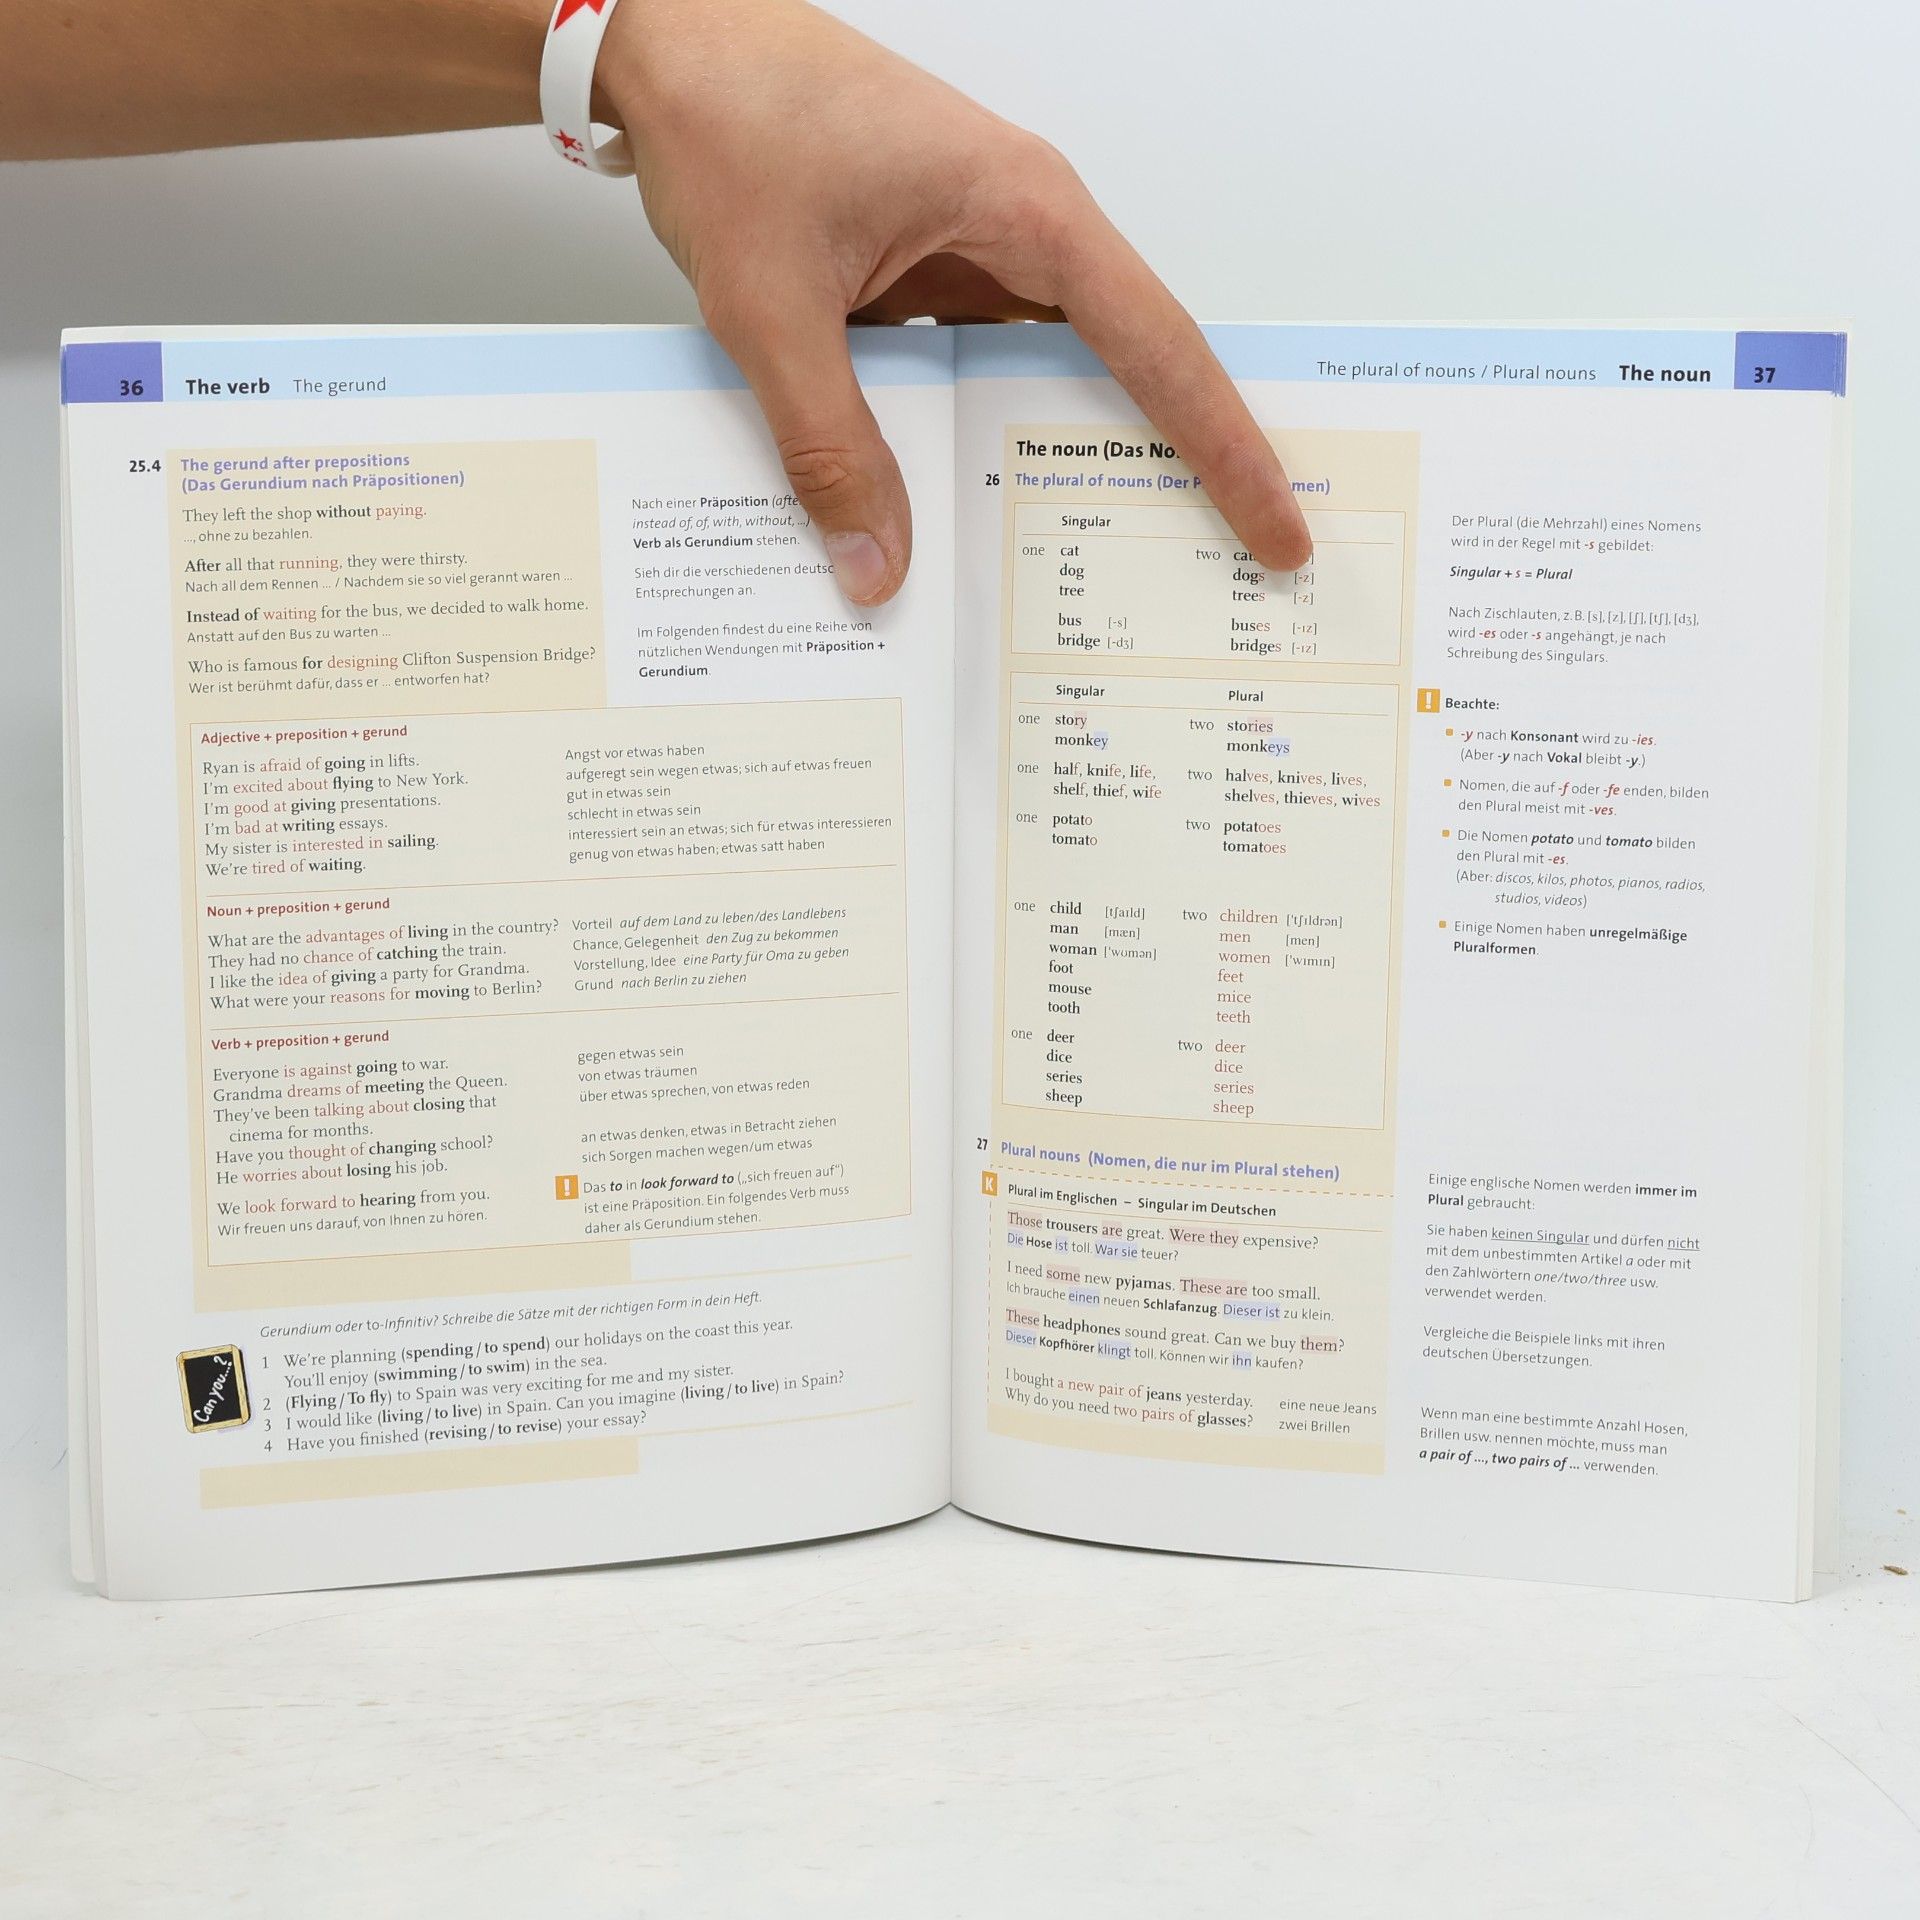 36 The verb The gerund
25.4 The gerund after prepositions
(Das Gerundium nach Präpositionen)
They left the shop without paying.
..., ohne zu bezahlen.
After all that running, they were thirsty.
Nach all dem Rennen ... / Nachdem sie so viel gerannt waren ...
Instead of waiting for the bus, we decided to walk home.
Anstatt auf den Bus zu warten ...
Who is famous for designing Clifton Suspension Bridge?
Wer ist berühmt dafür, dass er ... entworfen hat?
Nach einer Präposition
instead of, of, with, without, ...)
Verb als Gerundium stehen.
Sieh dir die verschiedenen
Entsprechungen an.
Im Folgenden findest du eine Reihe von
nützlichen Wendungen mit Präposition +
Gerundium.
Adjective + preposition + gerund
Ryan is afraid of going in lifts.
I'm excited about flying to New York.
I'm good at giving presentations.
I'm bad at writing essays.
My sister is interested in sailing.
We're tired of waiting.
Angst vor etwas haben
aufgeregt sein wegen etwas; sich auf etwas freuen
gut in etwas sein
schlecht in etwas sein
interessiert sein an etwas; sich für etwas interessieren
genug von etwas haben; etwas satt haben
Noun + preposition + gerund
What are the advantages of living in the country?
They had no chance of catching the train.
I like the idea of giving a party for Grandma.
What were your reasons for moving to Berlin?
Vorteil auf dem Land zu leben/des Landlebens
Chance, Gelegenheit den Zug zu bekommen
Vorstellung, Idee eine Party für Oma zu geben
Grund nach Berlin zu ziehen
Verb + preposition + gerund
Everyone is against going to war.
Grandma dreams of meeting the Queen.
They've been talking about closing that
cinema for months.
Have you thought of changing school?
He worries about losing his job.
We look forward to hearing from you.
Wir freuen uns darauf, von Ihnen zu hören.
gegen etwas sein
von etwas träumen
über etwas sprechen, von etwas reden
an etwas denken, etwas in Betracht ziehen
sich Sorgen machen wegen/um etwas
! Das to in look forward to („sich freuen auf“)
ist eine Präposition. Ein folgendes Verb muss
daher als Gerundium stehen.
Can you...?
Gerundium oder to-Infinitiv? Schreibe die Sätze mit der richtigen Form in dein Heft.
1 We're planning (spending / to spend) our holidays on the coast this year.
You'll enjoy (swimming / to swim) in the sea.
2 (Flying / To fly) to Spain was very exciting for me and my sister.
3 I would like (living / to live) in Spain. Can you imagine (living / to live) in Spain?
4 Have you finished (revising / to revise) your essay?
The plural of nouns / Plural nouns The noun 37
The noun (Das
26 The plural of nouns (Der
Singular
one cat two
dog dogs [-z]
tree trees [-z]
bus [-s] buses [-ɪz]
bridge [-dʒ] bridges [-ɪz]
Der Plural (die Mehrzahl) eines Nomens
wird in der Regel mit -s gebildet:
Singular + s = Plural
Nach Zischlauten, z. B. [s], [z], [ʃ], [tʃ], [dʒ],
wird -es oder -s angehängt, je nach
Schreibung des Singulars.
Singular Plural
one story two stories
monkey monkeys
one half, knife, life, two halves, knives, lives,
shelf, thief, wife shelves, thieves, wives
one potato two potatoes
tomato tomatoes
one child [tʃaɪld] two children ['tʃɪldrən]
man [mæn] men [men]
woman ['wʊmən] women ['wɪmɪn]
foot feet
mouse mice
tooth teeth
one deer two deer
dice dice
series series
sheep sheep
! Beachte:
-y nach Konsonant wird zu -ies.
(Aber -y nach Vokal bleibt -y.)
Nomen, die auf -f oder -fe enden, bilden
den Plural meist mit -ves.
Die Nomen potato und tomato bilden
den Plural mit -es.
(Aber: discos, kilos, photos, pianos, radios,
studios, videos)
Einige Nomen haben unregelmäßige
Pluralformen.
27 Plural nouns (Nomen, die nur im Plural stehen)
K Plural im Englischen – Singular im Deutschen
Those trousers are great. Were they expensive?
Die Hose ist toll. War sie teuer?
I need some new pyjamas. These are too small.
Ich brauche einen neuen Schlafanzug. Dieser ist zu klein.
These headphones sound great. Can we buy them?
Dieser Kopfhörer klingt toll. Können wir ihn kaufen?
I bought a new pair of jeans yesterday. eine neue Jeans
Why do you need two pairs of glasses? zwei Brillen
Einige englische Nomen werden immer im
Plural gebraucht:
Sie haben keinen Singular und dürfen nicht
mit dem unbestimmten Artikel a oder mit
den Zahlwörtern one/two/three usw.
verwendet werden.
Vergleiche die Beispiele links mit ihren
deutschen Übersetzungen.
Wenn man eine bestimmte Anzahl Hosen,
Brillen usw. nennen möchte, muss man
a pair of ..., two pairs of ... verwenden.